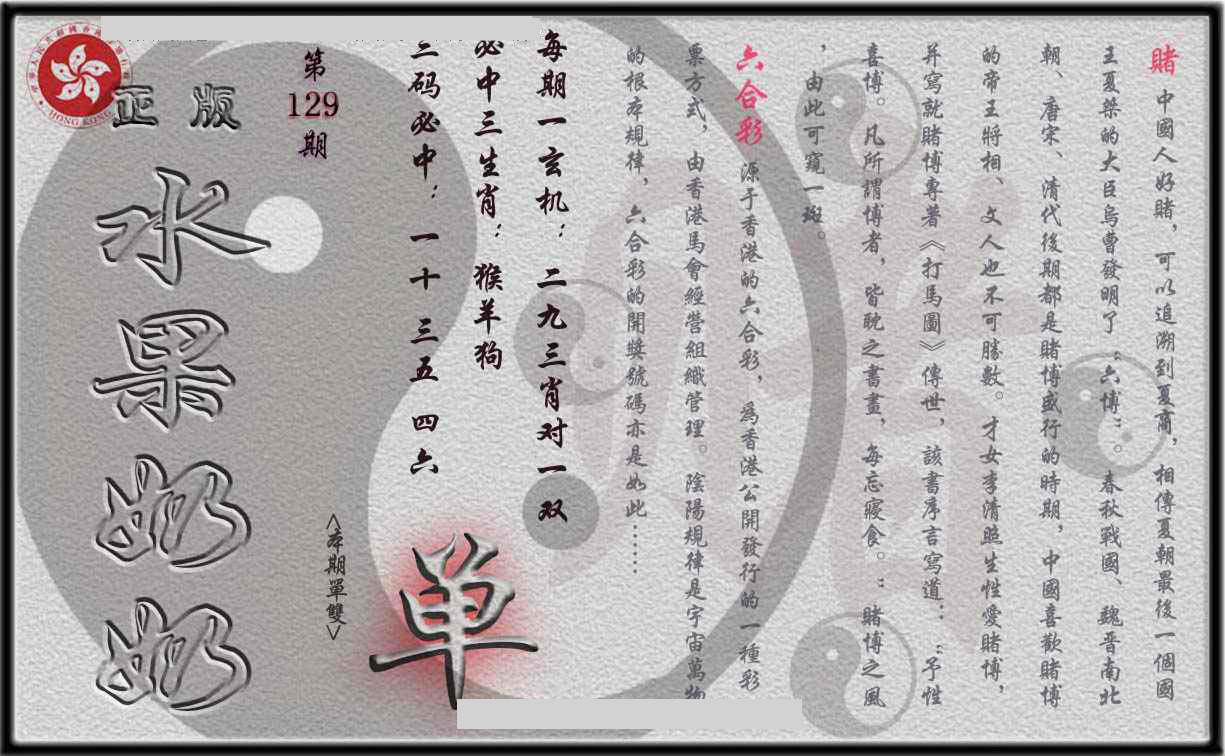 賭 中國人好賭，可以追溯到夏商，相傳夏朝最後一個國
王夏桀的大臣烏曹發明了“六博”。春秋戰國、魏晋南北
朝、唐宋、清代後期都是賭博盛行的時期，中國喜歡賭博
的帝王將相、文人也不可勝數。才女李清照生性愛賭博，
并寫就賭博專著《打馬圖》傳世，該書序言寫道：“予性
喜博。凡所謂博者，皆耽之書畫，每忘寢食。”賭博之風
，由此可窺一斑。
六合彩 源于香港的六合彩，爲香港公開發行的一種彩
票方式，由香港馬會經營組織管理。陰陽規律是宇宙萬物
的根本規律，六合彩的開獎號碼亦是如此……
每期一玄机：二九三肖对一双
必中三生肖：猴羊狗
三码必中：一十 三五 四六
第129期
<本期單雙>
单
正版
水果奶奶
HONG KONG